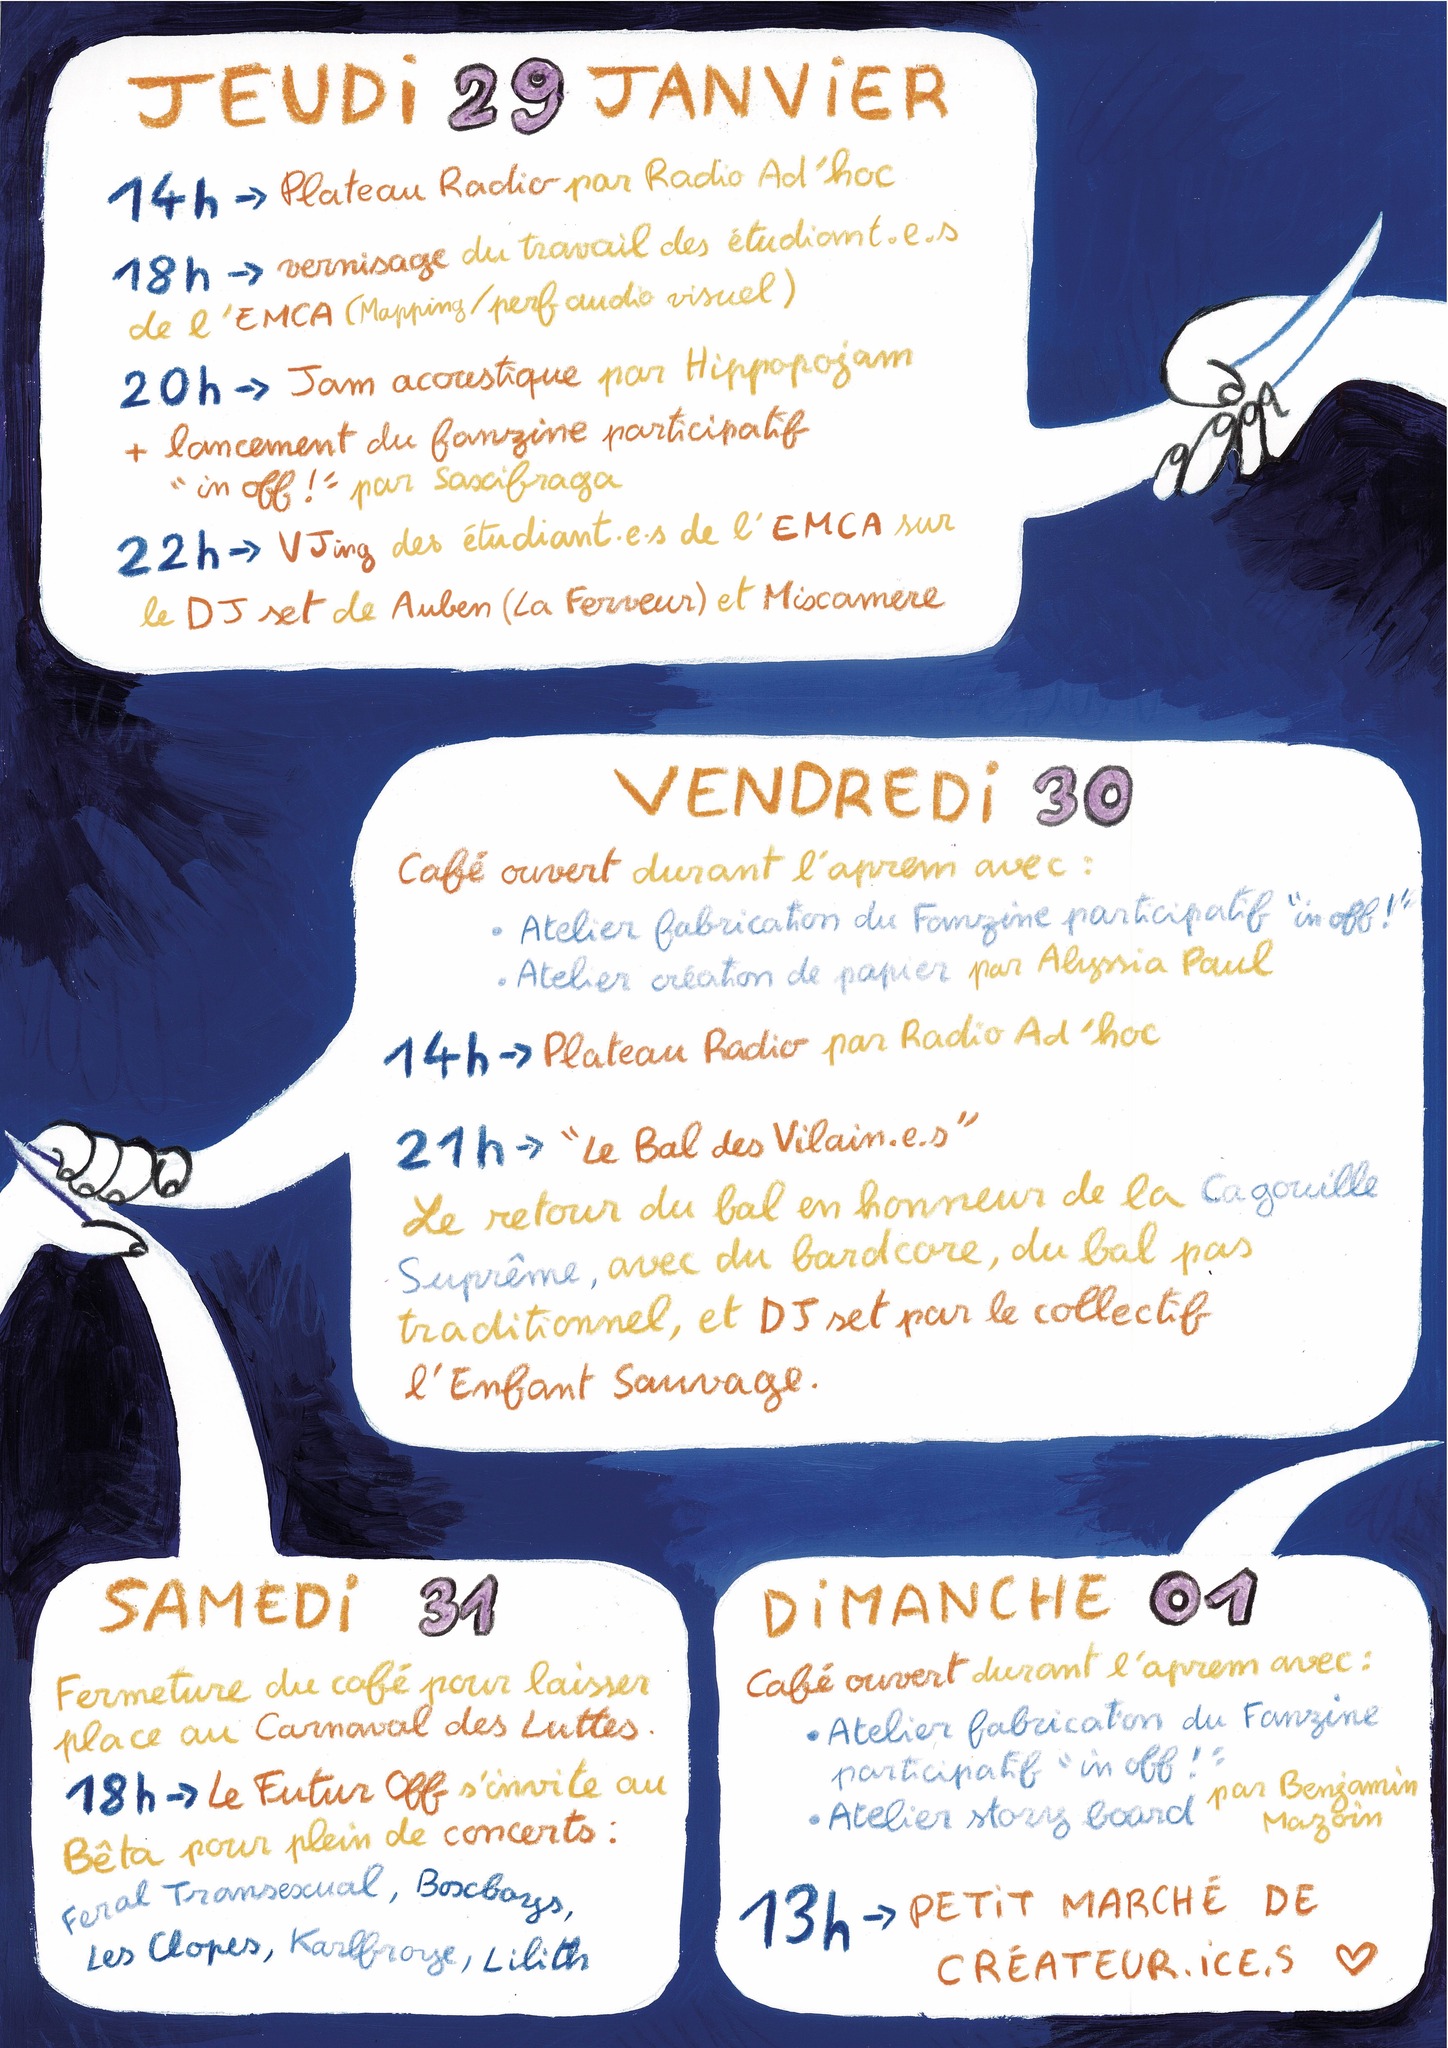 JEUDi 29 JANViER
14h → Plateau Radio par Radio Ad'hoc
18h → vernisage du travail des étudiant.e.s
de l'EMCA (Mapping/perf audio visuel)
20h → Jam acoustique par Hippopojam
+ lancement du fanzine participatif
"in off!" par Saxifraga
22h → VJing des étudiant.e.s de l'EMCA sur
le DJ set de Auben (La Ferveur) et Miscamere
VENDREDi 30
Café ouvert durant l'aprem avec :
• Atelier fabrication du Fanzine participatif "in off!"
• Atelier création de papier par Alyssia Paul
14h → Plateau Radio par Radio Ad'hoc
21h → "Le Bal des Vilain.e.s"
Le retour du bal en honneur de la Cagouille
Suprême, avec du bardcore, du bal pas
traditionnel, et DJ set par le collectif
l'Enfant Sauvage.
SAMEDi 31
Fermeture du café pour laisser
place au Carnaval des Luttes.
18h → Le Futur Off s'invite au
Bêta pour plein de concerts :
Feral Transexual, Boxboys,
Les Clopes, Karlfroye, Lilith
DiMANCHE 01
Café ouvert durant l'aprem avec :
• Atelier fabrication du Fanzine
participatif "in off!"
• Atelier story board par Benjamin
Mazoin
13h → PETiT MARCHÉ DE
CRÉATEUR.iCE.S ♡